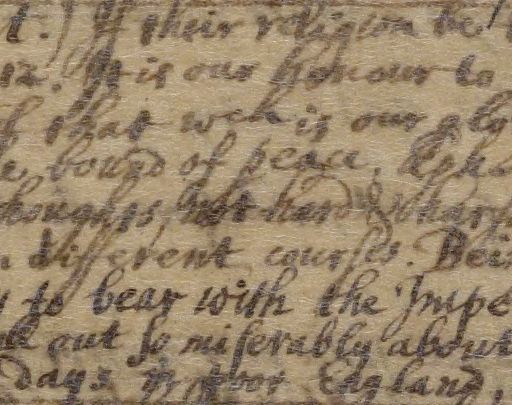 t.) If their religion be
12. It is our honour to
that wch is our gly
bound of peace, Eph
thoughts, but hard & sharp
different courses. Bei
to bear with the Impe
out so miserably about
days in poor England,